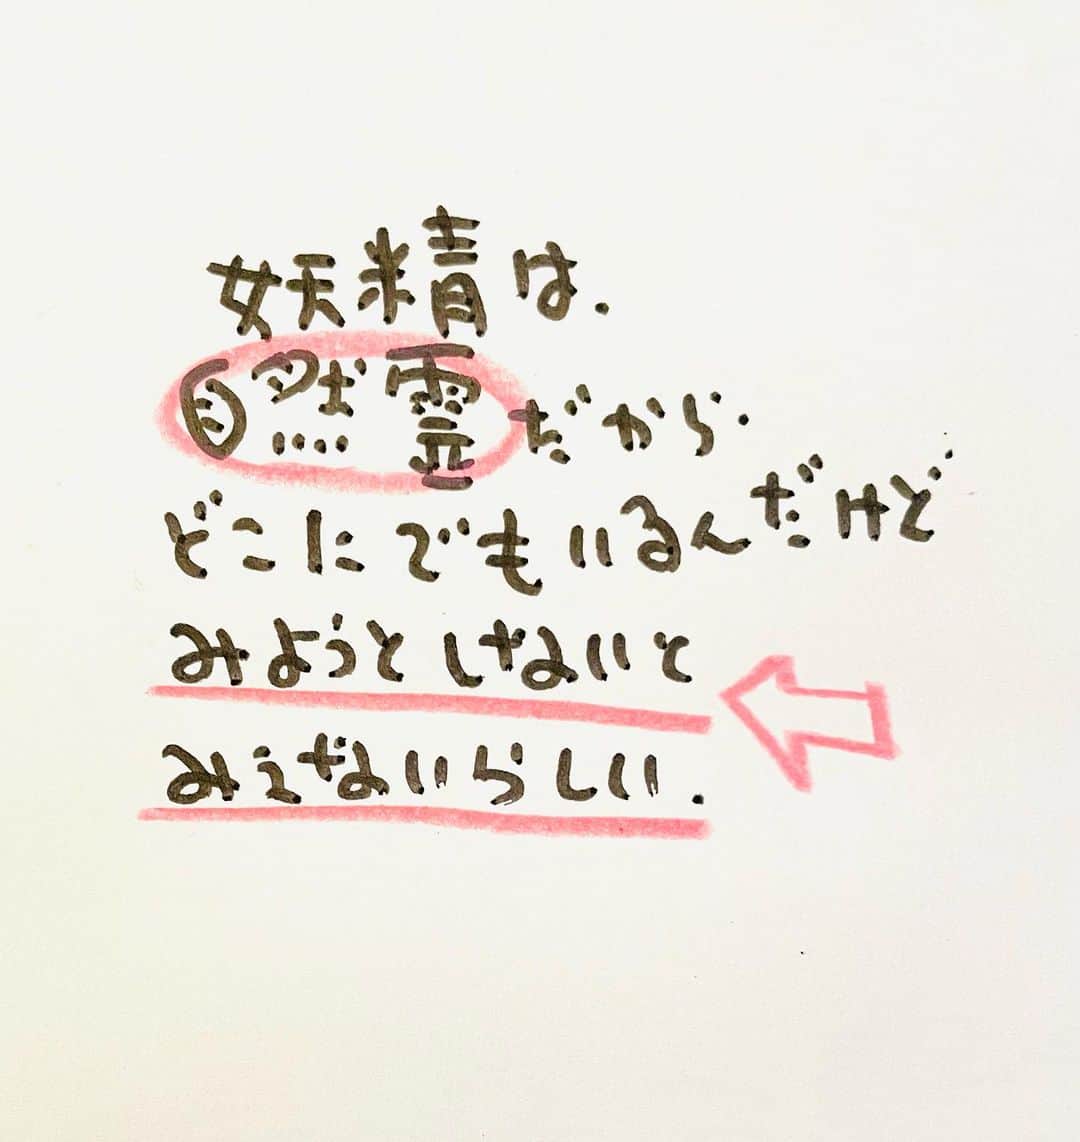 妖精は.
自然霊だから.
どこにでもいるんだけど..
みようとしないと
みえないらしい.